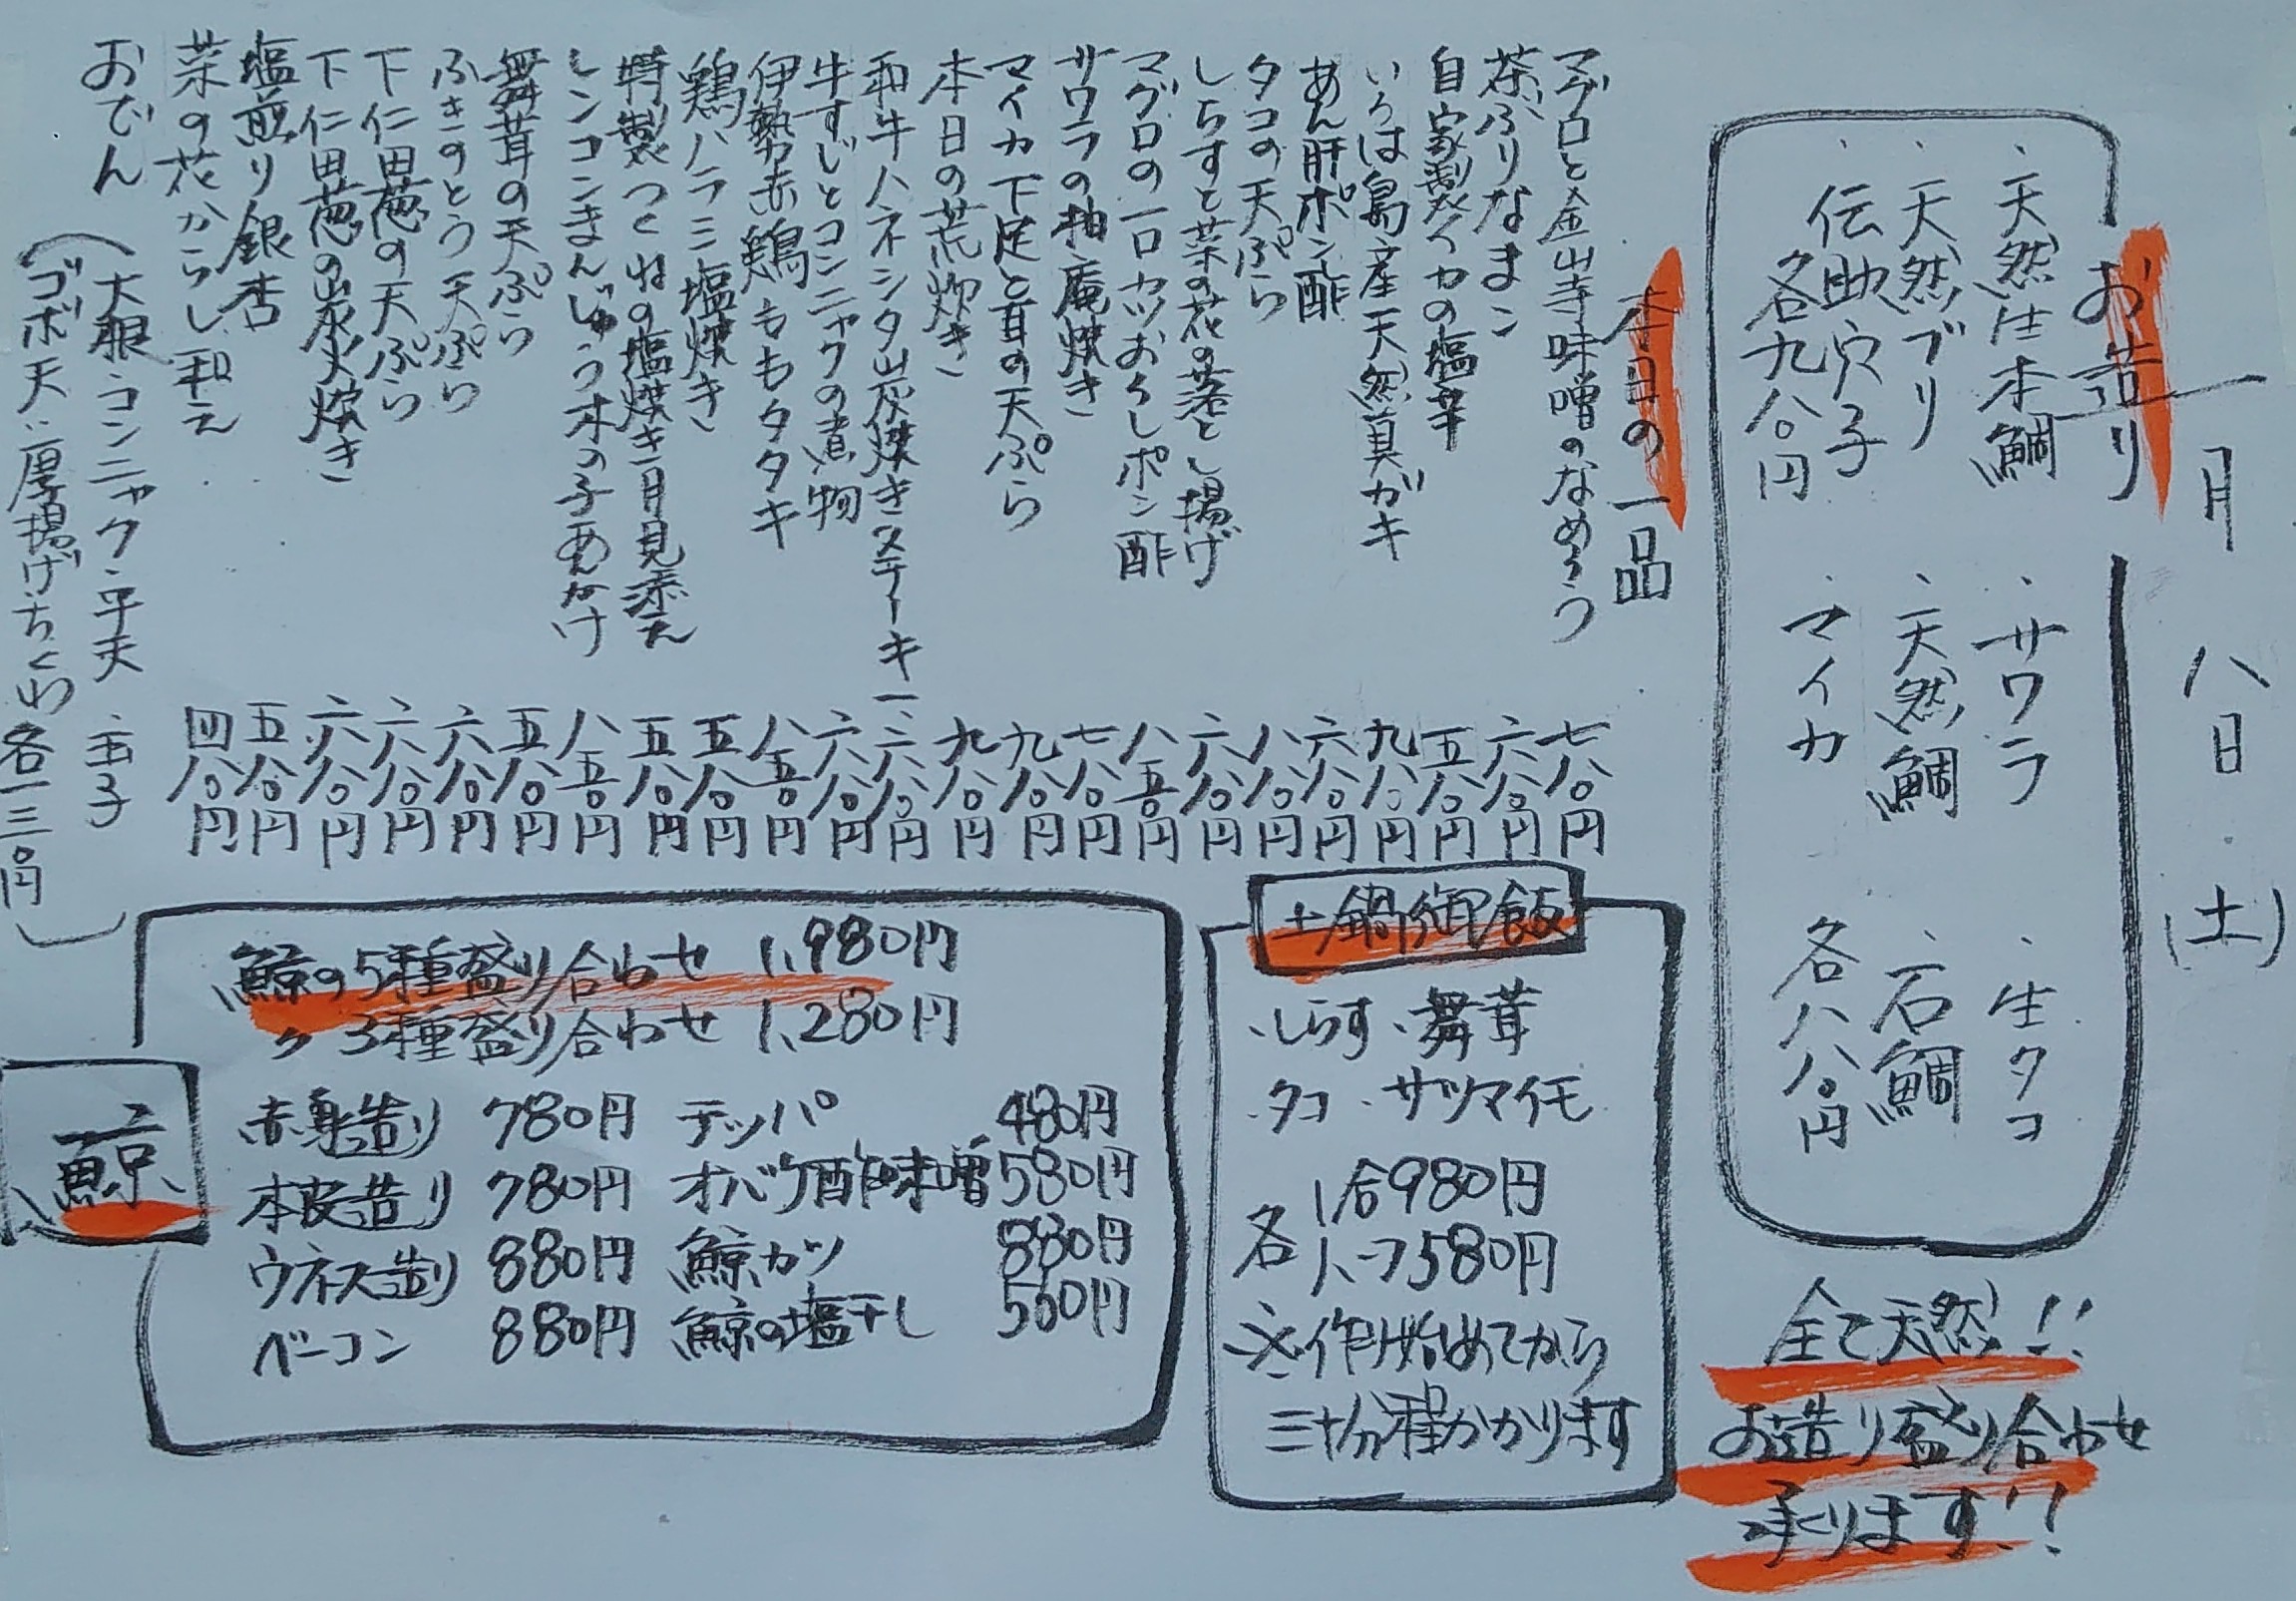 一月八日(土)
お造り
・天然生本鯛
・サワラ
・生タコ
・天然ブリ
・天然鯛
・石鯛
・伝助穴子
・マイカ
各九八〇円
各八八〇円
全て天然!!
お造り盛り合わせ
承ります!!
本日の一品
マグロと金山寺味噌のなめろう 七八〇円
茶ぶりなまこ 六八〇円
自家製イカの塩辛 五八〇円
いろは島産天然真ガキ 九八〇円
あん肝ポン酢 六八〇円
タコの天ぷら 八八〇円
しらすと菜の花の落とし揚げ 六八〇円
マグロの一口カツおろしポン酢 八五〇円
サワラの柚庵焼き 七八〇円
マイカ下足と茸の天ぷら 九八〇円
本日の荒炊き 九八〇円
和牛ハネシタ炭焼きステーキ 一、六八〇円
牛すじとコンニャクの煮物 六八〇円
伊勢赤鶏ももタタキ 八五〇円
鶏ハラミ塩焼き 五八〇円
特製つくねの塩焼き月見添え 五八〇円
レンコンまんじゅう木の子あんかけ 八五〇円
舞茸の天ぷら 五八〇円
ふきのとう天ぷら 六八〇円
下仁田葱の天ぷら 六八〇円
下仁田葱の炭火焼き 六八〇円
塩煎り銀杏 五八〇円
菜の花からし和え 四八〇円
おでん
(大根・コンニャク・平天・玉子
ゴボ天・厚揚げ・ちくわ 各一三〇円)
土鍋御飯
・しらす・舞茸
・タコ・サツマイモ
各 1合980円
ハーフ580円
※作り始めてから
三十分程かかります
鯨
鯨の5種盛り合わせ 1,980円
〃 3種盛り合わせ 1,280円
赤身造り 780円 テッパ 480円
本皮造り 780円 オバケ酢味噌 580円
ウネス造り 880円 鯨カツ 880円
ベーコン 880円 鯨の塩干し 550円